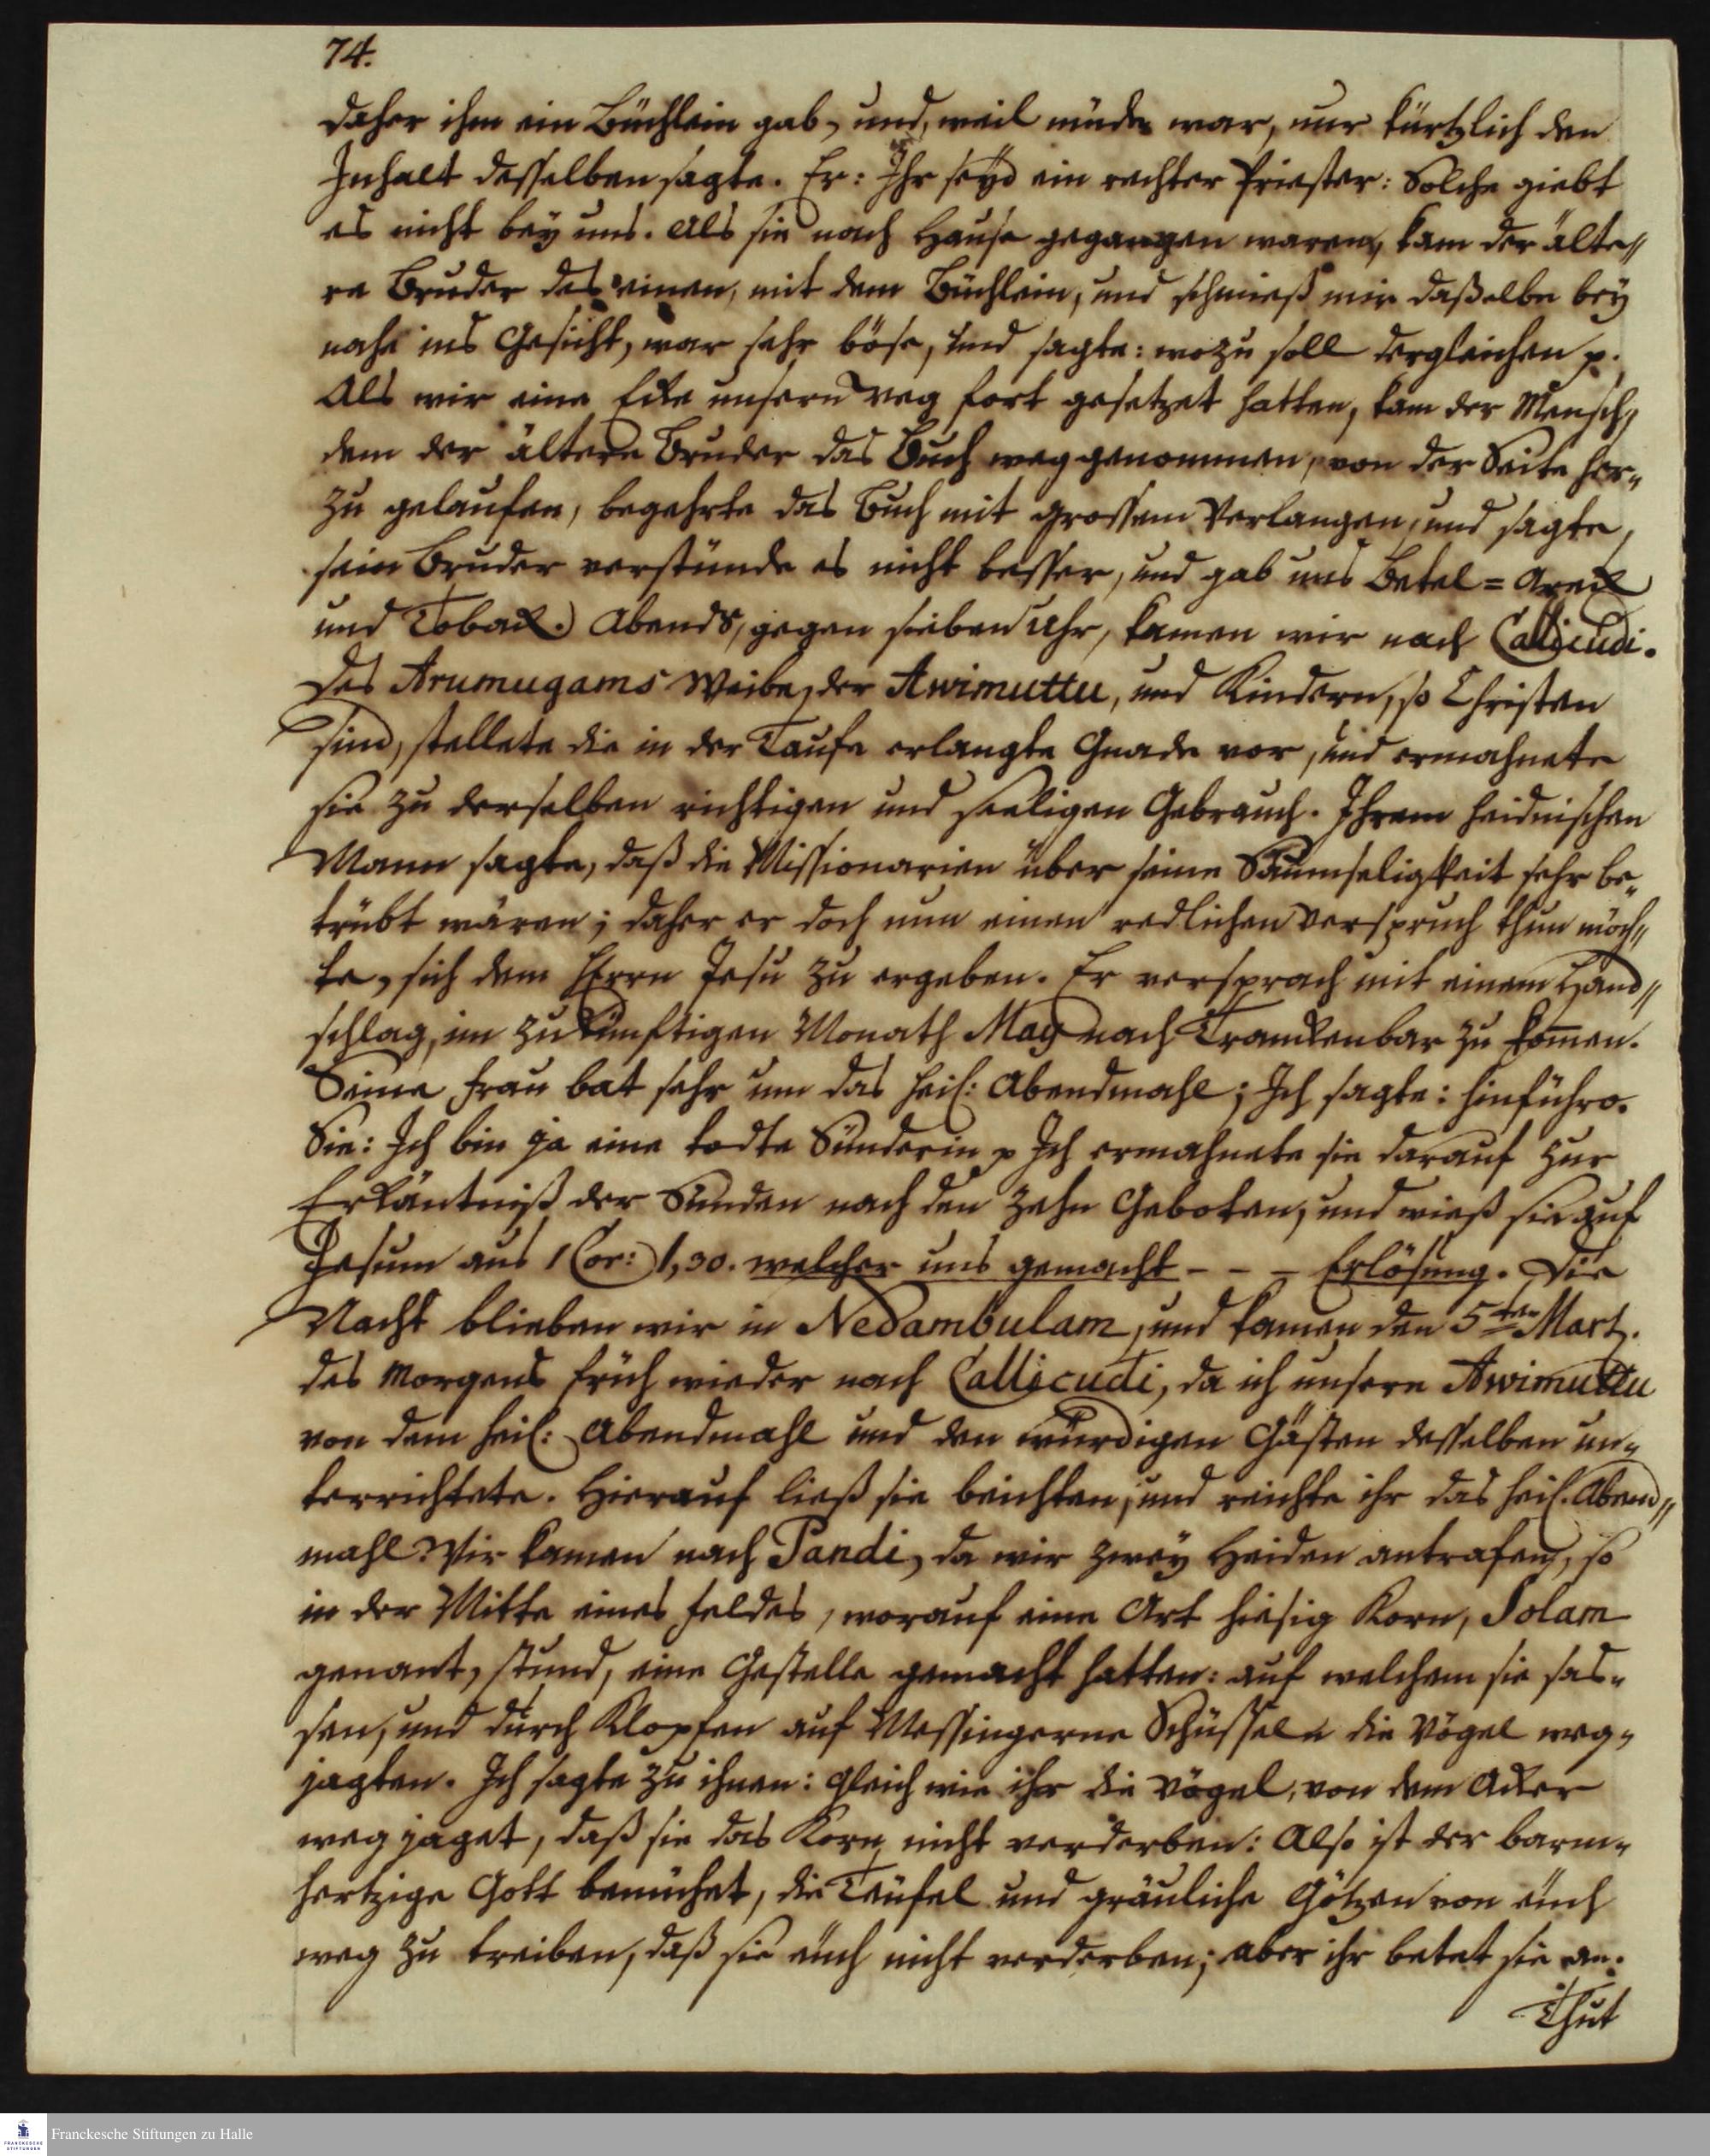 74.
daher ihm ein Büchlein gab, und, weil müde war, nur kürtzlich den
Inhalt desselben sagte. Er: Ihr seÿd ein rechter Priester: Solche giebt
es nicht beÿ uns. Als sie nach Hause gegangen waren, kam der älte„
re Bruder des einen, mit dem Büchlein, und schmieß mir daßelbe beÿ
nahe ins Gesicht, war sehr böse, und sagte: wozu soll dergleichen p.
Als wir eine Ecke unsern Weg fort gesetzet hatten, kam der Mensch,
dem der ältere Bruder das Buch weg genommen, von der Seite her„
zu gelaufen, begehrte das Buch mit grossem Verlangen, und sagte,
sein Bruder verstünde es nicht besser, und gab uns Betel=Areck
und Toback.) Abends, gegen sieben Uhr, kamen wir nach Callicudi.
Des Arumugams Weibe, der Awimuttu, und Kindern, so Christen
sind, stellete die in der Taufe erlangte Gnade vor, und ermahnete
sie zu derselben richtigen und seeligen Gebrauch. Ihrem heidnischen
Mann sagte, daß die Missionarien über seine Saumseligkeit sehr be„
trübt wären; daher er doch nun einen redlichen Verspruch thun möch„
te, sich dem HErrn Jesu zu ergeben. Er versprach mit einem Hand„
schlag, im zukünftigen Monath Maÿ nach Tranckenbar zu kom̄en.
Seine Frau bat sehr um das heil: Abendmahl; Ich sagte: hinführo.
Sie: Ich bin ja eine todte Sünderin p Ich ermahnete sie darauf zur
Erkäntniß der Sünden nach den Zehn Geboten, und wieß sie auf
Jesum aus 1 Cor: 1,30. welcher uns gemacht - - - Erlösung. Die
Nacht blieben wir in Nedambulam, und kamen den 5ten Mart.
des Morgens früh wieder nach Callicudi, da ich unsere Awimuttu
von dem heil: Abendmahl und den würdigen Gästen desselben un„
terrichtete. Hierauf ließ sie beichten, und reichte ihr das heil. Abend„
mahl. Wir kamen nach Pandi, da wir zweÿ Heiden antrafen, so
in der Mitte eines Feldes, worauf eine Art hiesig Korn, Solam
genant, stund, eine Gestelle gemacht hatten: auf welchem sie sas„
sen, und durch Klopfen auf Messingerne Schüsseln die Vögel weg„
jagten. Ich sagte zu ihnen: gleich wie ihr die Vögel, von dem Acker
weg jaget, daß sie das Korn nicht verderben: Also ist der barm„
hertzige Gott bemühet, die Teufel und gräuliche Götzen von euch
weg zu treiben, daß sie euch nicht verderben; aber ihr betet sie an.
Thut
FRANCKESCHE
STIFTUNGEN
Franckesche Stiftungen zu Halle